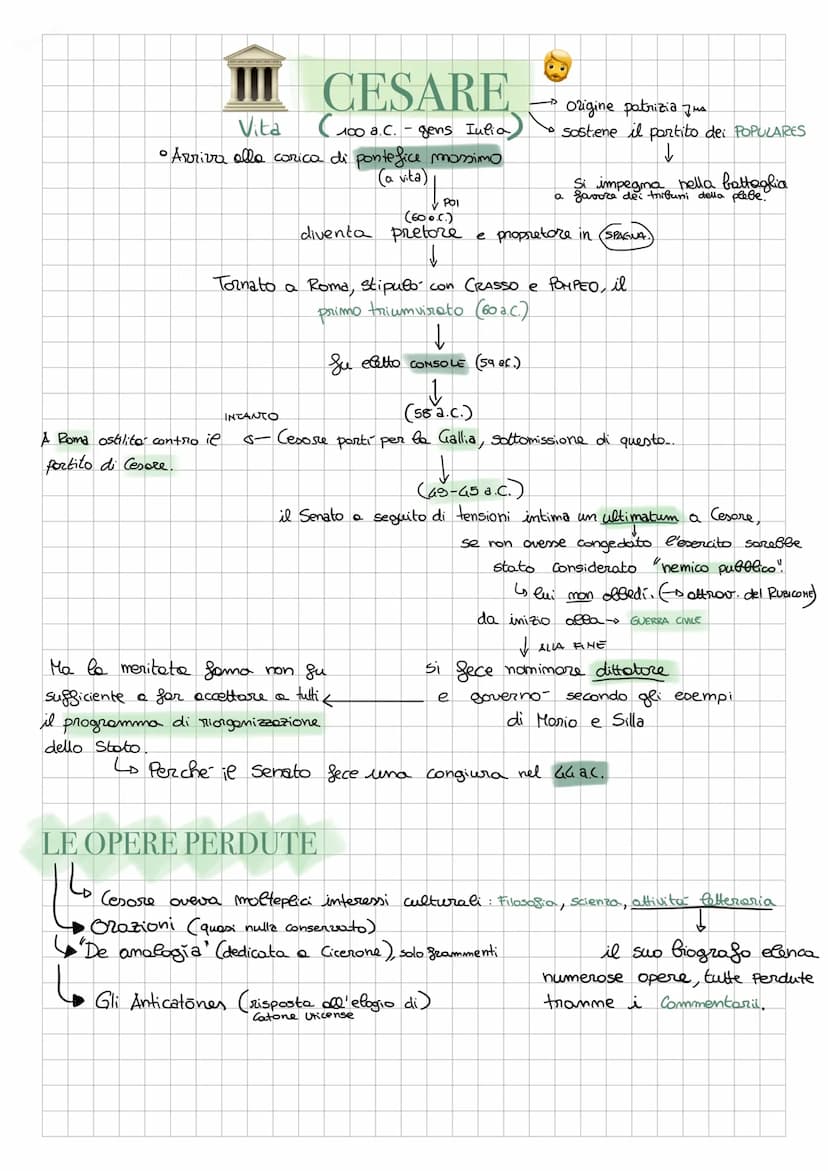 CESARE
Vita (100 a.C. - gens Iulia)
→ origine patrizia
→ sostiene il partito dei POPULARES
↓
si impegna nella battaglia
a favore dei tribuni della plebe.
° Arriva alla carica di pontefice massimo
(a vita)
↓ POI
(60 a.C.)
diventa pretore e propretore in SPAGNA.
↓
Tornato a Roma, stipulò con CRASSO e POMPEO, il
primo triumvirato (60 a.C.)
↓
fu eletto CONSOLE (59 a.C.)
↓
(58 a.C.)
INTANTO
Cesare partì per la Gallia, sottomissione di questo..
A Roma ostilità contro il
partito di Cesare.
↓
(49-45 a.C.)
il Senato a seguito di tensioni intima un ultimatum a Cesare,
se non avesse congedato l'esercito sarebbe
stato considerato "nemico pubblico".
↳ lui non obbedì. (→ attrav. del RUBICONE)
da inizio alla → GUERRA CIVILE
↓ ALLA FINE
si fece nomimare dittatore
e governò secondo gli esempi
di Mario e Silla
Ma la meritata fama non fu
sufficiente a far accettare a tutti
il programma di riorganizzazione
dello Stato.
↳ Perché il Senato fece una congiura nel 44 a.C.
LE OPERE PERDUTE
↳ Cesare aveva molteplici interessi culturali : Filosofia, scienza, attività letteraria
↓
il suo biografo elenca
numerose opere, tutte perdute
tranme i Commentarii.
Orazioni (quasi nulla conservato)
"De analogia" (dedicata a Cicerone), solo frammenti
Gli Anticatōnes (risposta all'elogio di)
Catone Uticense